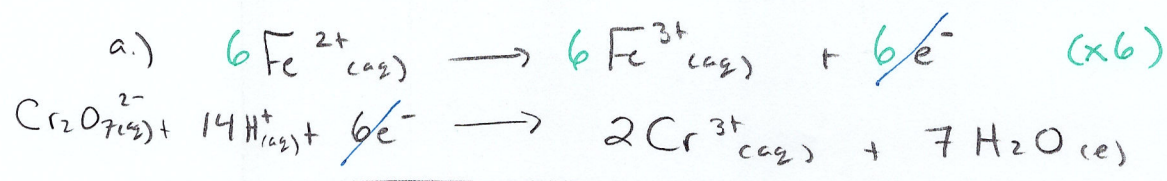 a.) 6 Fe²⁺(aq) → 6 Fe³⁺(aq) + 6e⁻ (x6)
Cr₂O₇²⁻(aq) + 14H⁺(aq) + 6e⁻ → 2Cr³⁺(aq) + 7H₂O(l)